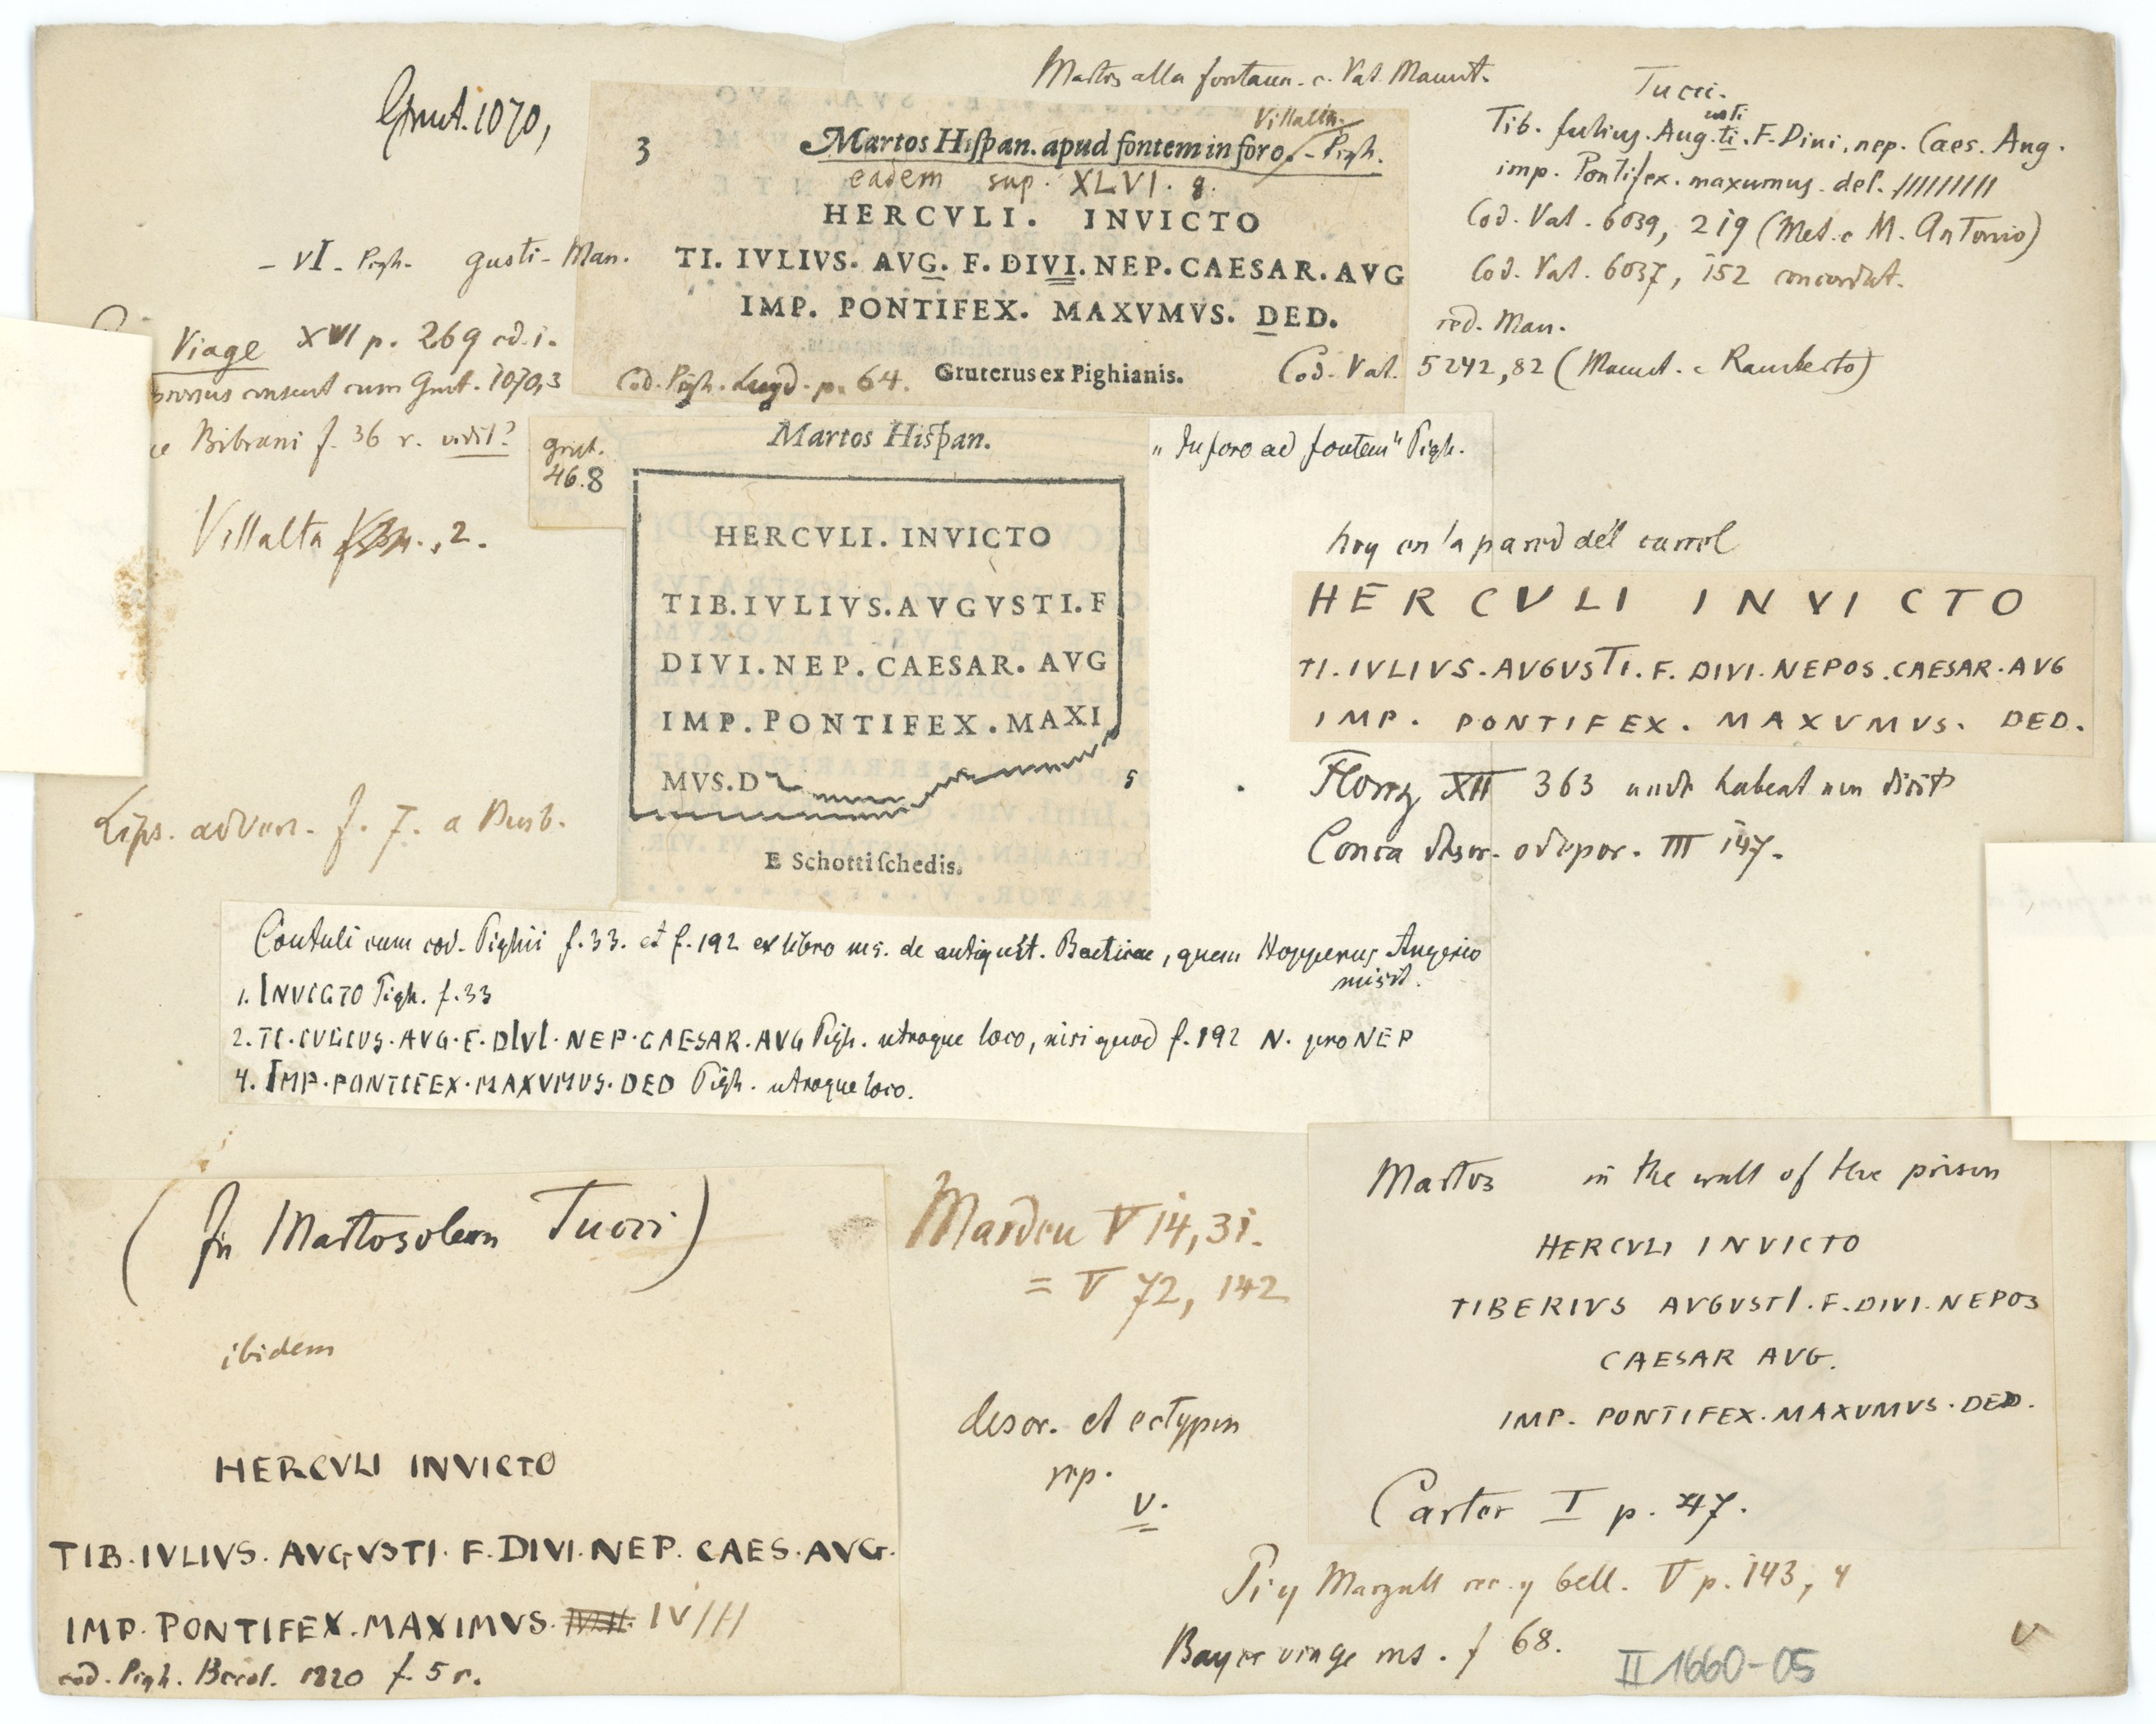 Grut. 1070,
3
Martos alla fontana. c. Vat. Manut.
Villalta.
Martos Hiſpan. apud fontem in foro. - Pigh.
eadem sup. XLVI. 8.
HERCVLI. INVICTO
TI. IVLIVS. AVG. F. DIVI. NEP. CAESAR. AVG
IMP. PONTIFEX. MAXVMVS. DED.
Cod. Pigh. Lugd. p. 64. Gruterus ex Pighianis.
- VI - Pigh. gusti - Man.
Tucci.
usti
Tib. Julius. Aug. ti. F. Divi. nep. Caes. Aug.
imp. Pontifex. maxumus. del. /////////
Cod. Vat. 6039, 219 (Met. c M. Antonio)
Cod. Vat. 6037, 152 concordat.
red. Man.
Cod. Vat. 5242, 82 (Manut. c Ramberto)
Viage XVI p. 269 ed. i.
consent cum Grut. 1070,3
Bibrani f. 36 r. vidit?
Villalta , 2.
Lips. advers. f. 7. a Busb.
Grut.
46.8
Martos Hiſpan.
HERCVLI. INVICTO
TIB. IVLIVS. AVGVSTI. F
DIVI. NEP. CAESAR. AVG
IMP. PONTIFEX. MAXI
MVS. D
s
E Schotti ſchedis.
"In foro ad fontem" Pigh.
hoy en la pared del carcel
HERCVLI INVICTO
TI. IVLIVS. AVGVSTI. F. DIVI. NEPOS. CAESAR. AVG
IMP. PONTIFEX. MAXVMVS. DED.
Florez XII 363 unde habeat non dicit
Conca descr. odepor. III 147.
Contuli cum cod. Pighii f. 33. et f. 192 ex libro ms. de antiquit. Baeticae, quem Hopperus Augerio
misit.
1. INVICTO Pigh. f. 33
2. TI. IVLIVS. AVG. F. DIVI. NEP. CAESAR. AVG Pigh. utroque loco, nisi quod f. 192 N. pro NEP
4. IMP. PONTIFEX. MAXVMVS. DED Pigh. utroque loco.
(In Martosolem Tucci)
ibidem
HERCVLI INVICTO
TIB. IVLIVS. AVGVSTI. F. DIVI. NEP. CAES. AVG.
IMP. PONTIFEX. MAXIMVS. IV///
cod. Pigh. Berol. 1820 f. 5 r.
Masdeu V 14, 31.
= V 72, 142
descr. et ectypon
rep.
V.
Martos in the wall of the prison
HERCVLI INVICTO
TIBERIVS AVGVSTI. F. DIVI. NEPOS
CAESAR AVG.
IMP. PONTIFEX. MAXVMVS. DED.
Carter I p. 47.
Pi y Margall rec. y bell. V p. 143, 4
Bayer viage ms. f 68.
V
II 1660-05